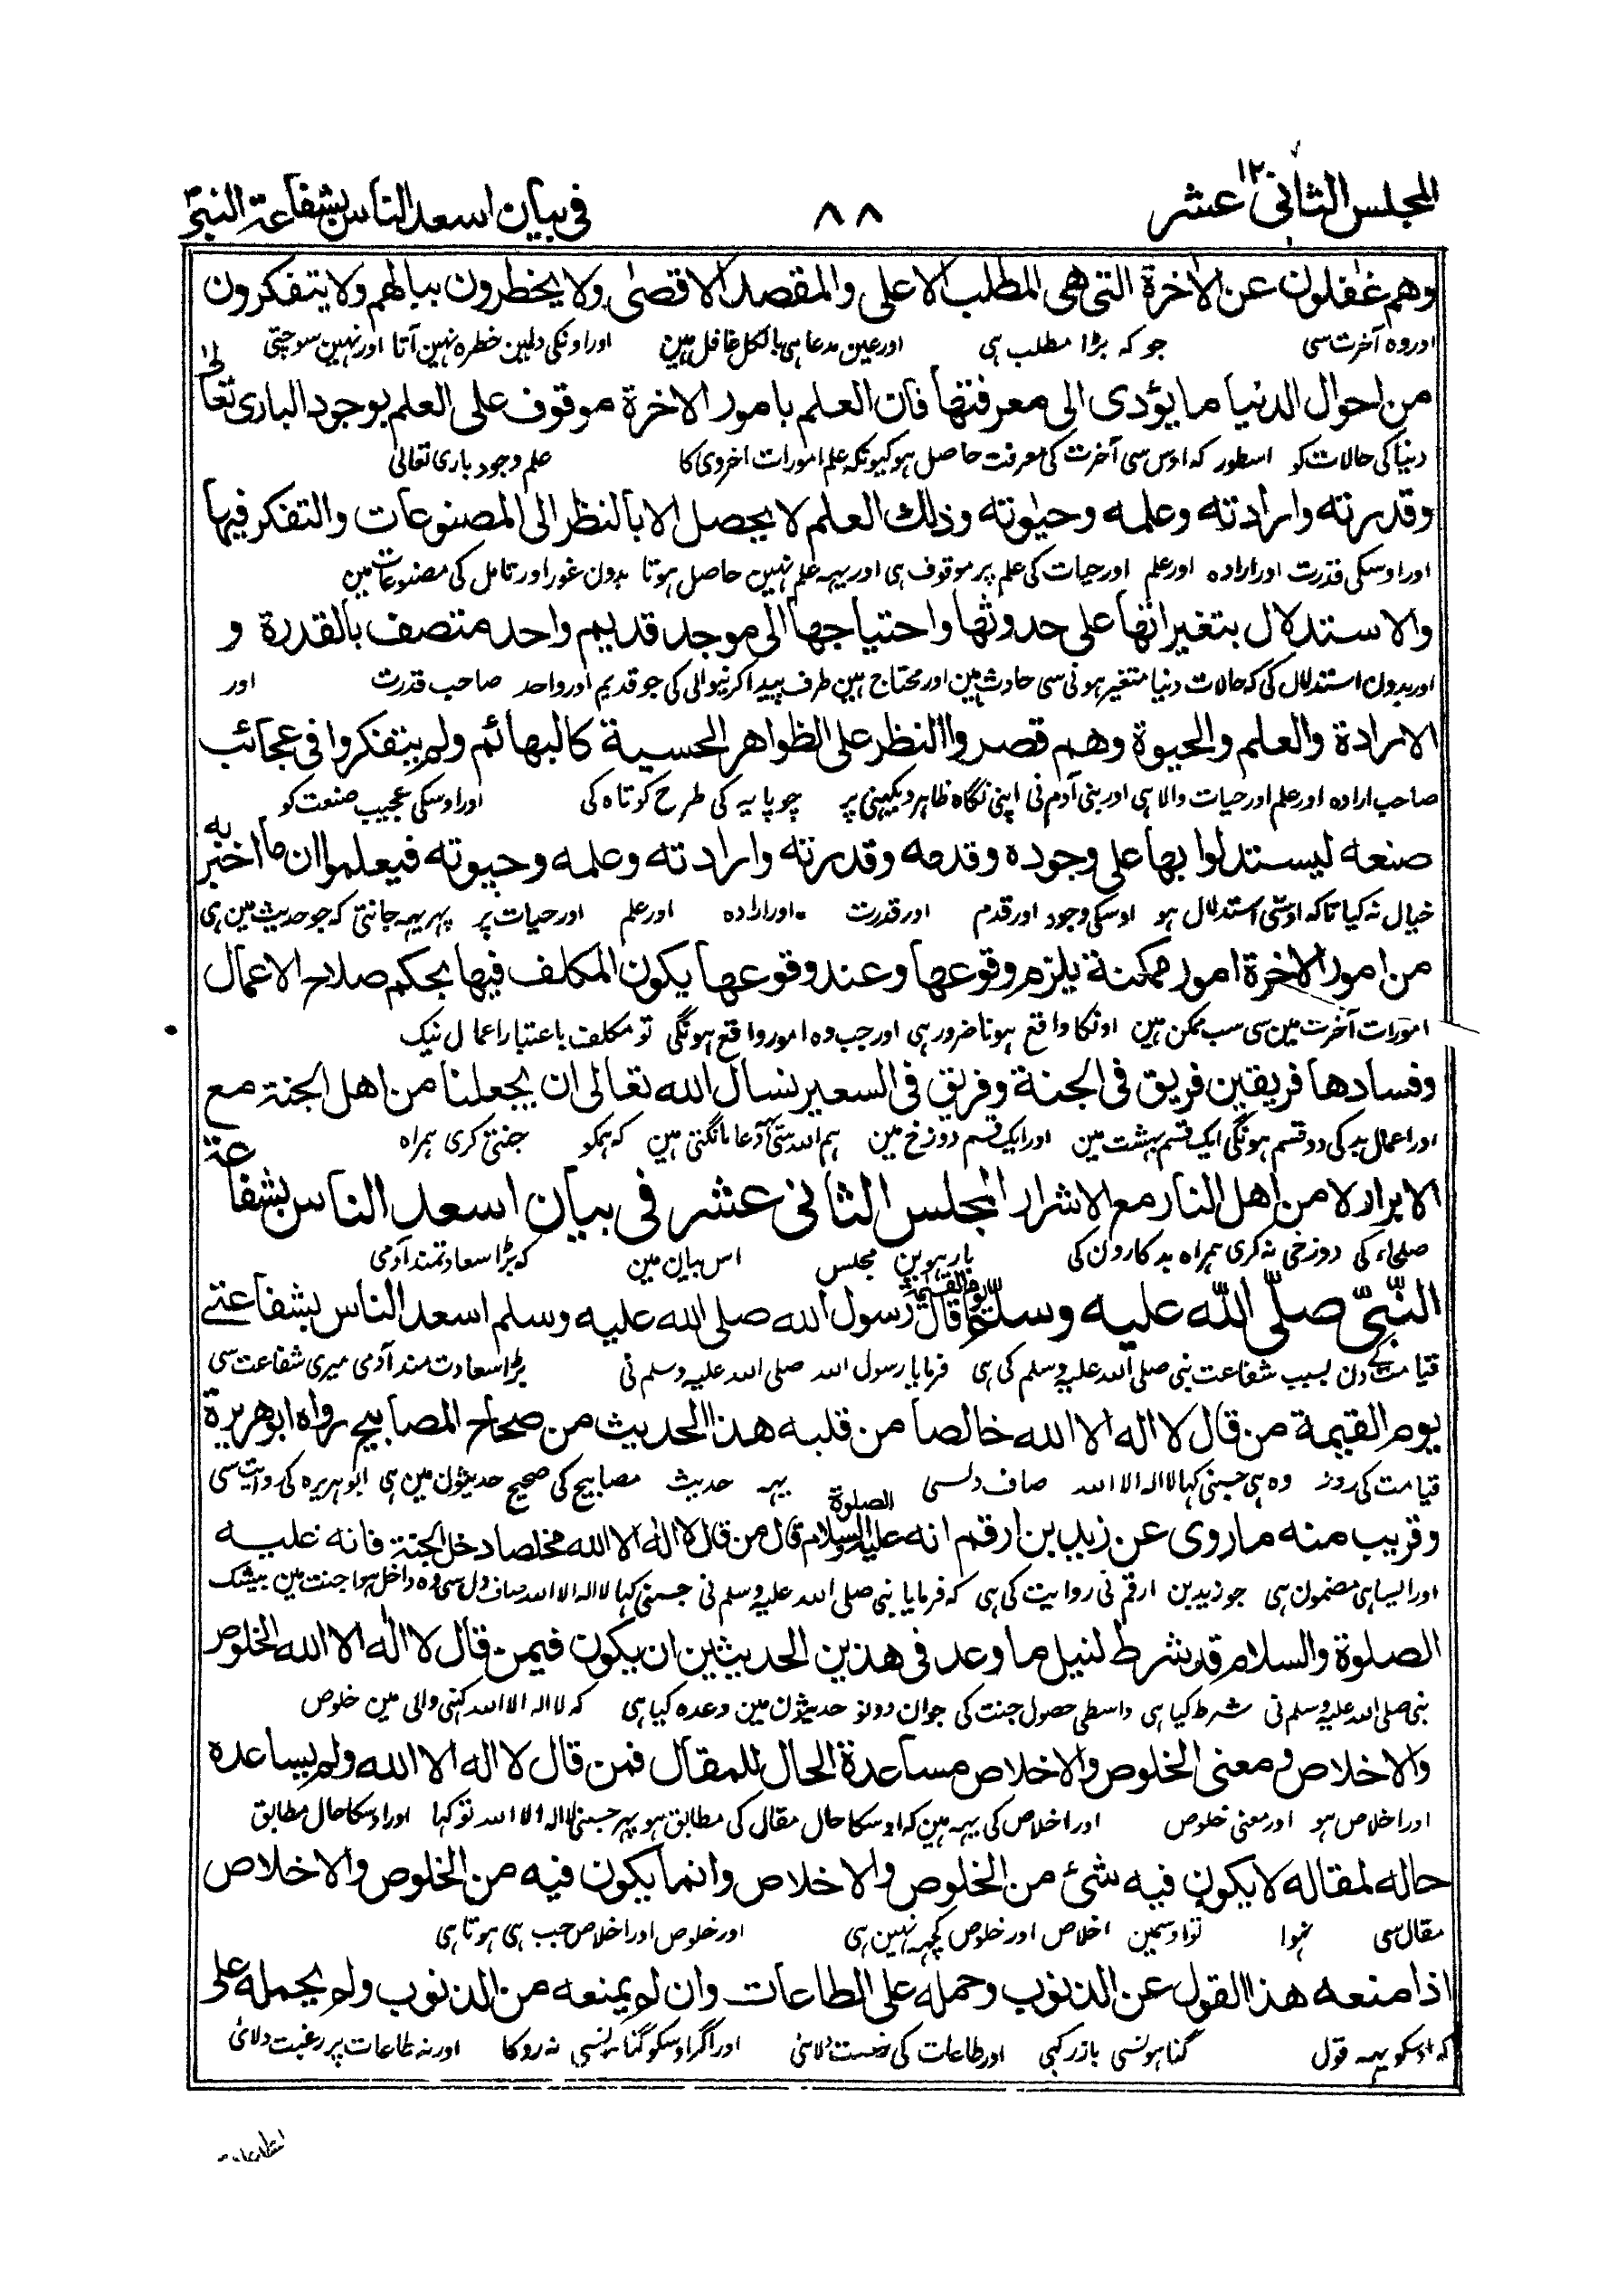 المجلس الثانی عشر ١٢
٨٨
فی بیان اسعد الناس بشفاعة النبی
وهم غفلون عن الاخرة التی هی المطلب الاعلی والمقصد الاقصی ولا یخطرون ببالهم ولا یتفکرون
اور وہ آخرت سی جو کہ بڑا مطلب ہی اور عین مدعا ہی بالکل غافل ہین اور اونکی دلمین خطرہ نہین آتا اور نہین سوچتی
من احوال الدنیا ما یؤدی الی معرفتها فان العلم بامور الاخرة موقوف علی العلم بوجود الباری تعالیٰ
دنیا کی حالات کو اسطور کہ اوس سی آخرت کی معرفت حاصل ہو کیونکہ علم امورات اخروی کا علم وجود باری تعالیٰ
وقدرته وارادته وعلمه وحیوته وذلك العلم لا یحصل الا بالنظر الی المصنوعات والتفکر فیها
اور اوسکی قدرت اور ارادہ اور علم اور حیات کی علم پر موقوف ہی اور یہہ علم نہین حاصل ہوتا بدون غور اور تامل کی مصنوعات مین
والاستدلال بتغیراتها علی حدوثها واحتیاجها الی موجد قدیم واحد متصف بالقدرة و
اور بدون استدلال کی کہ حالات دنیا متغیر ہونی سی حادث ہین اور محتاج ہین طرف پیدا کرنیوالی کی جو قدیم اور واحد صاحب قدرت اور
الارادة والعلم والحیوة وهم قصروا النظر علی الظواهر الحسیة کالبهائم ولم یتفکروا فی عجائب
صاحب ارادہ اور علم اور حیات والا ہی اور بنی آدم نی اپنی نگاہ ظاہر دیکہنی پر چوپایہ کی طرح کوتاہ کی اور اوسکی عجیب صنعت کو
صنعه لیستدلوا بها علی وجوده وقدمه وقدرته وارادته وعلمه وحیوته فیعلموا ان ما اخبر به
خیال نہ کیا تاکہ اوسی استدلال ہو اوسکی وجود اور قدم اور قدرت اور ارادہ اور علم اور حیات پر پہر یہہ جانتی کہ جو حدیث مین ہی
من امور الاخرة امور ممکنة یلزم وقوعها وعند وقوعها یکون المکلف فیها بحکم صلاح الاعمال
امورات آخرت مین سی سب ممکن ہین اونکا واقع ہونا ضرور ہی اور جب وہ امور واقع ہونگی تو مکلف باعتبار اعمال نیک
وفسادها فریقین فریق فی الجنة وفریق فی السعیر نسال الله تعالی ان یجعلنا من اهل الجنة مع
اور اعمال بد کی دو قسم ہونگی ایک قسم بہشت مین اور ایک قسم دوزخ مین ہم اللہ سی دعا مانگتی ہین کہ ہمکو جنتی کری ہمراہ
الابرار لا من اهل النار مع الاشرار المجلس الثانی عشر فی بیان اسعد الناس بشفاعة
صلحاء کی دوزخی نہ کری ہمراہ بدکارون کی بارہوین مجلس اس بیان مین کہ بڑا سعادتمند آدمی
النبی صلی الله علیه وسلم یوم القیمة قال رسول الله صلی الله علیه وسلم اسعد الناس بشفاعتی
قیامت کے دن بسبب شفاعت نبی صلی اللہ علیہ وسلم کی ہی فرمایا رسول اللہ صلی اللہ علیہ وسلم نی بڑا سعادت مند آدمی میری شفاعت سی
یوم القیمة من قال لا اله الا الله خالصا من قلبه هذا الحدیث من صحاح المصابیح رواه ابو هریرة
قیامت کی روز وہ ہی جسنی کہا لا الہ الا اللہ صاف دلسی یہہ حدیث مصابیح کی صحیح حدیثون مین ہی ابو ہریرہ کی روایت سی
وقریب منه ما روی عن زید بن ارقم انه علیه الصلوة والسلام قال من قال لا اله الا الله مخلصا دخل الجنة فانه علیه
اور ایسا ہی مضمون ہی جو زید بن ارقم نی روایت کی ہی کہ فرمایا نبی صلی اللہ علیہ وسلم نی جسنی کہا لا الہ الا اللہ صاف دل سی وہ داخل ہوا جنت مین بیشک
الصلوة والسلام قد شرط لنیل ما وعد فی هذین الحدیثین ان یکون فیمن قال لا اله الا الله الخلوص
نبی صلی اللہ علیہ وسلم نی شرط کیا ہی واسطی حصول جنت کی جو ان دونو حدیثون مین وعدہ کیا ہی کہ لا الہ الا اللہ کہنی والی مین خلوص
والاخلاص ومعنی الخلوص والاخلاص مساعدة الحال للمقال فمن قال لا اله الا الله ولم یساعده
اور اخلاص ہو اور معنی خلوص اور اخلاص کی یہہ ہین کہ اوسکا حال مقال کی مطابق ہو پہر جسنی لا الہ الا اللہ تو کہا اور اوسکا حال مطابق
حاله لمقاله لا یکون فیه شئ من الخلوص والاخلاص وانما یکون فیه من الخلوص والاخلاص
مقال سی نہوا تو اوسمین اخلاص اور خلوص کچہہ نہین ہی اور خلوص اور اخلاص جب ہی ہوتا ہی
اذا منعه هذا القول عن الذنوب وحمله علی الطاعات وان لم یمنعه من الذنوب ولم یحمله علی
کہ اوسکو یہہ قول گناہونسی باز رکہی اور طاعات کی دلائی اور اگر اوسکو گناہونسی نہ روکا اور نہ طاعات پر رغبت دلائی